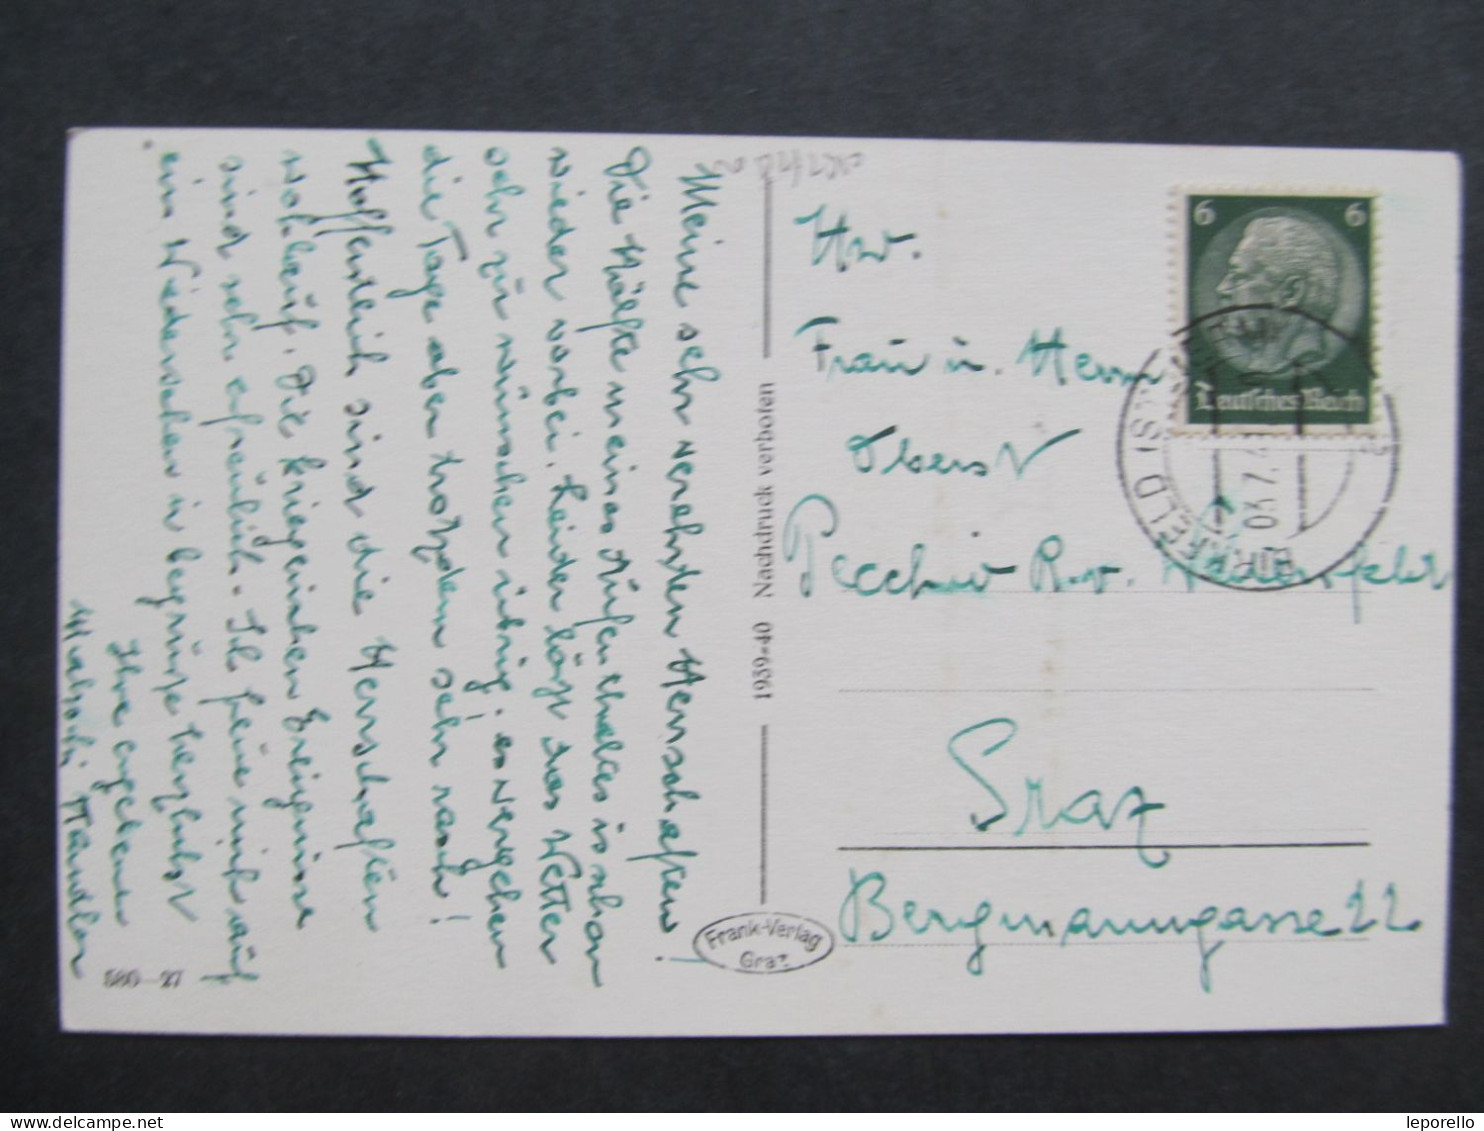 Meine sehr verehrten Herrschaften!
Die Hälfte meines Aufenthaltes ist schon
wieder vorbei. Leider lässt das Wetter
sehr zu wünschen übrig. es vergehen
die Tage aber trotzdem sehr rasch!
Hoffentlich sind die Herrschaften
wohlauf. Die kriegerischen Ereignisse
sind sehr erfreulich. Ich freue mich auf
ein Wiedersehen u. begrüsse herzlichst
Ihre ergebene
Mandler
580-27
1939-40 Nachdruck verboten
Frank-Verlag
Graz
6 6
Deutsches Reich
BIRKFELD
Hw.
Frau u. Herrn
Oberst
Pecchio R. v.
Graz
Bergmanngasse 22
leporello